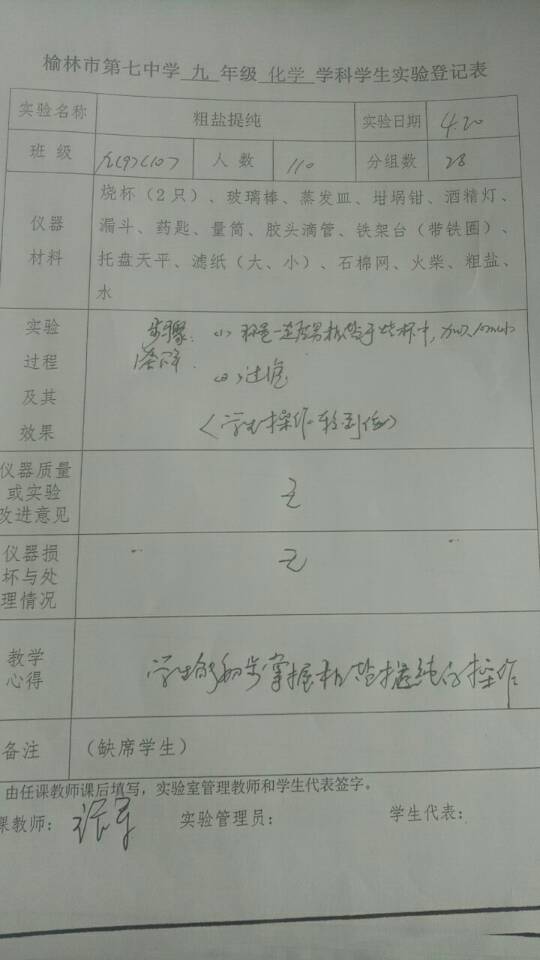 榆林市第七中学 九 年级 化学 学科学生实验登记表
实验名称 粗盐提纯 实验日期 4.20
班 级 九(9)(10) 人 数 110 分组数 28
仪器
材料
烧杯（2只）、玻璃棒、蒸发皿、坩埚钳、酒精灯、
漏斗、药匙、量筒、胶头滴管、铁架台（带铁圈）、
托盘天平、滤纸（大、小）、石棉网、火柴、粗盐、
水
实验
过程
及其
效果
步骤: (1) 称量一定质量粗盐于烧杯中,
溶解
(2) 过滤
(学生操作较到位)
仪器质量
或实验
改进意见
无
仪器损
坏与处
理情况
无
教学
心得
学生能初步掌握粗盐提纯的操作
备注 （缺席学生）
由任课教师课后填写，实验室管理教师和学生代表签字。
课教师： 实验管理员： 学生代表：